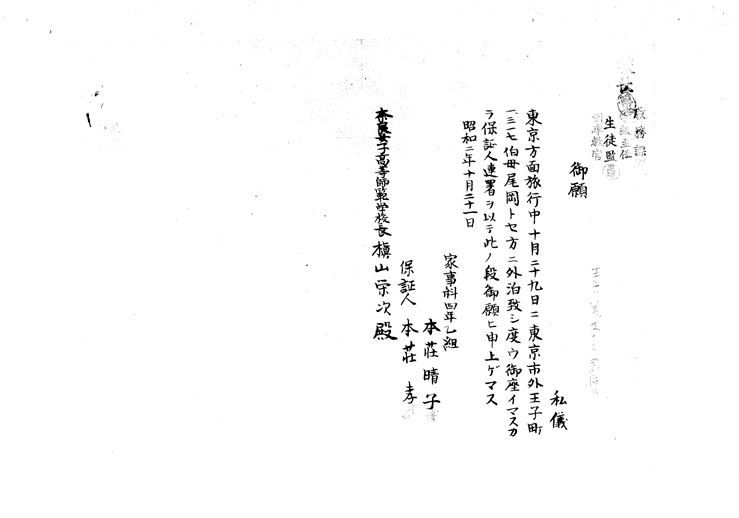 生徒監
御願
私儀
東京方面旅行中十月二十九日ニ東京市外王子町
一三一七伯母尾岡トセ方ニ外泊致シ度ウ御座イマスカ
ラ保証人連署ヲ以テ此ノ段御願ヒ申上ゲマス
昭和二年十月二十一日
家事科四年乙組
本莊晴子
保証人 本莊 孝
奈良女子高等師範学校長 槇山栄次殿